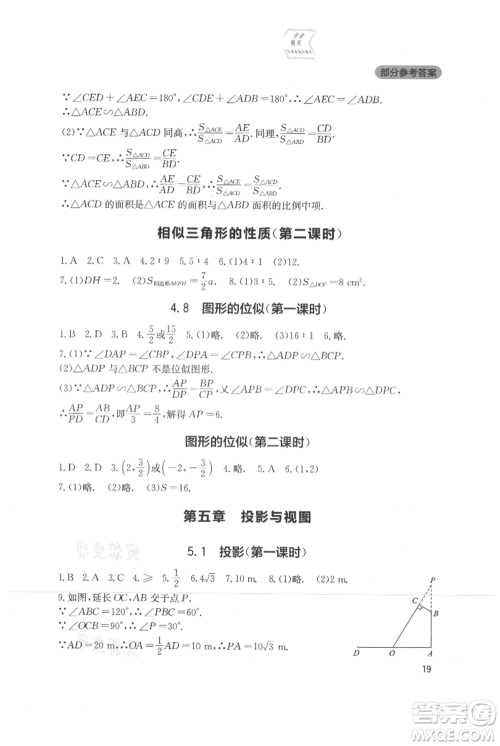 部分参考答案
∵∠CED+∠AEC=180°,∠ADE+∠ADB=180°,∴∠AEC=∠ADB.
∴△ACE∽△ABD.
(2)∵△ACE与△ACD同高,∴S△ACE/S△ACD=AE/AD.同理,S△ACD/S△ABD=CD/BD.
∵CD=CE,∴S△ACD/S△ABD=CE/BD.
∵△ACE∽△ABD,∴AE/AD=CE/BD.∴S△ACE/S△ACD=S△ACD/S△ABD.
∴△ACD的面积是△ACE的面积与△ABD的面积的比例中项.
相似三角形的性质(第二课时)
1.A 2.C 3.A 4.2∶9 5.A 6.(1)1∶2.(2)12.
7.(1)DH=2.(2)S四边形AEFH=7/2a. 8.(1)3∶1.(2)S△DCF=8 cm².
4.8 图形的位似(第一课时)
1.B 2.D 3.A 4.5/2或15/2 5.(1)略.(2)略. 6.(1)略.(2)略.(3)16∶1.
7.(1)∵∠DAP=∠CBP,∠DPA=∠CPB,∴△ADP∽△BCP.
(2)△ADP与△BCP不是位似图形.
(3)∵△ADP∽△BCP,∴AP/PD=BP/CP.
∴AP/PD=BP/CP,即AP/3=8/4,解得AP=6.
图形的位似(第二课时)
1.D 2.D 3.(2,3/2)或(-2,-3/2) 4.(1)略.(2)略. 5.A 6.(1)略.
7.(1)略.(2)略.(3)S=16.
第五章 投影与视图
5.1 投影(第一课时)
1.B 2.C 3.A 4.⩾ 5.1/2 6.4√3 7.10m. 8.(1)略.(2)4m.
9.如图,延长OC,AB交于点P.
∵∠ABC=120°,∴∠PBC=60°.
∵∠OCB=∠A=90°,∴∠P=30°.
∵AD=20m,∴OA=1/2AD=10m,∴PA=10√3m.
P
C
B
D
O
A
19